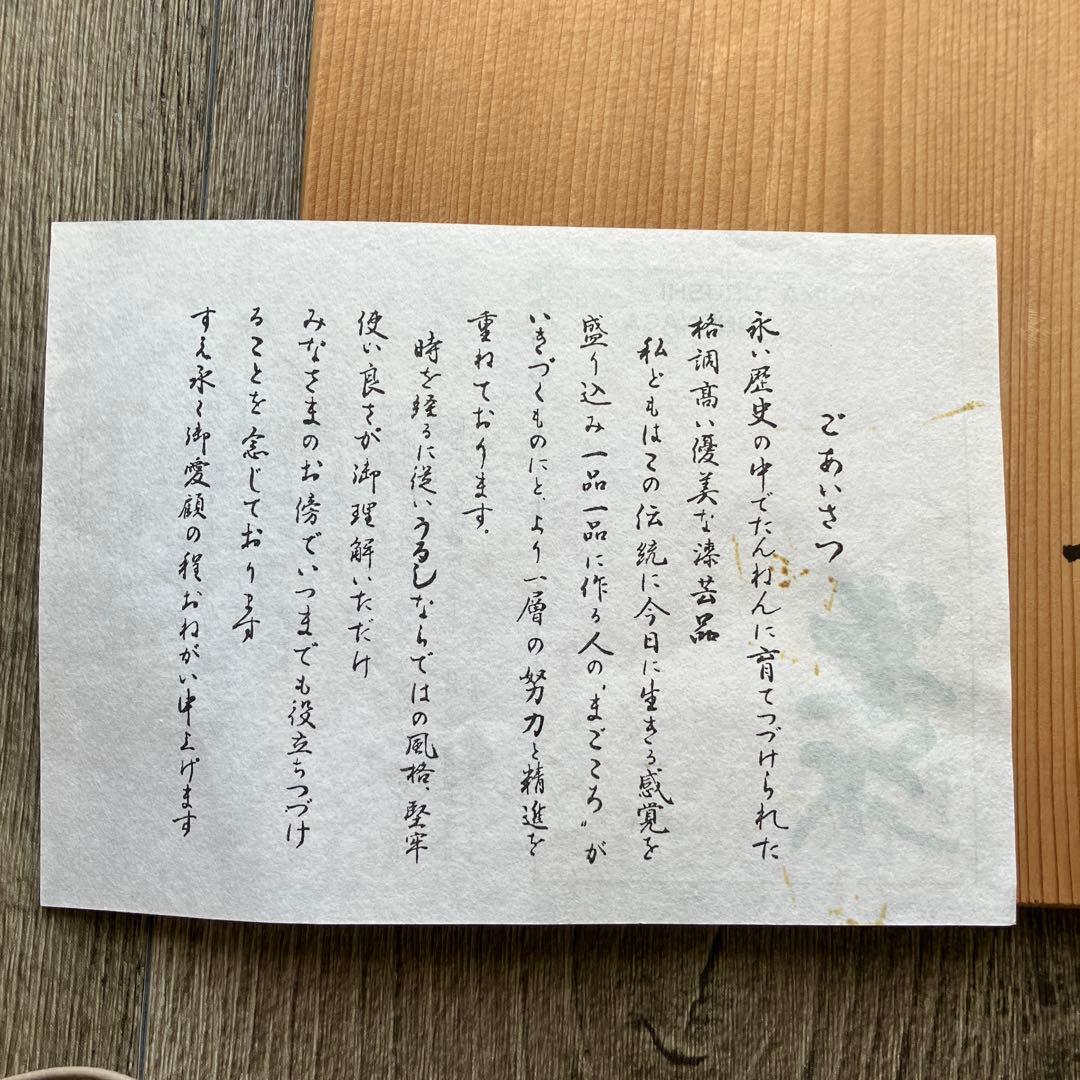 ごあいさつ
永い歴史の中でたんねんに育てつづけられた
格調高い優美な漆芸品
私どもはこの伝統に今日に生きる感覚を
盛り込み一品一品に作る人の〝まごころ〟が
いきづくものにと、より一層の努力と精進を
重ねております。
時を経るに従いうるしならではの風格、堅牢
使い良さが御理解いただけ
みなさまのお傍でいつまでも役立ちつづけ
ることを念じております
すえ永く御愛顧の程おねがい申上げます